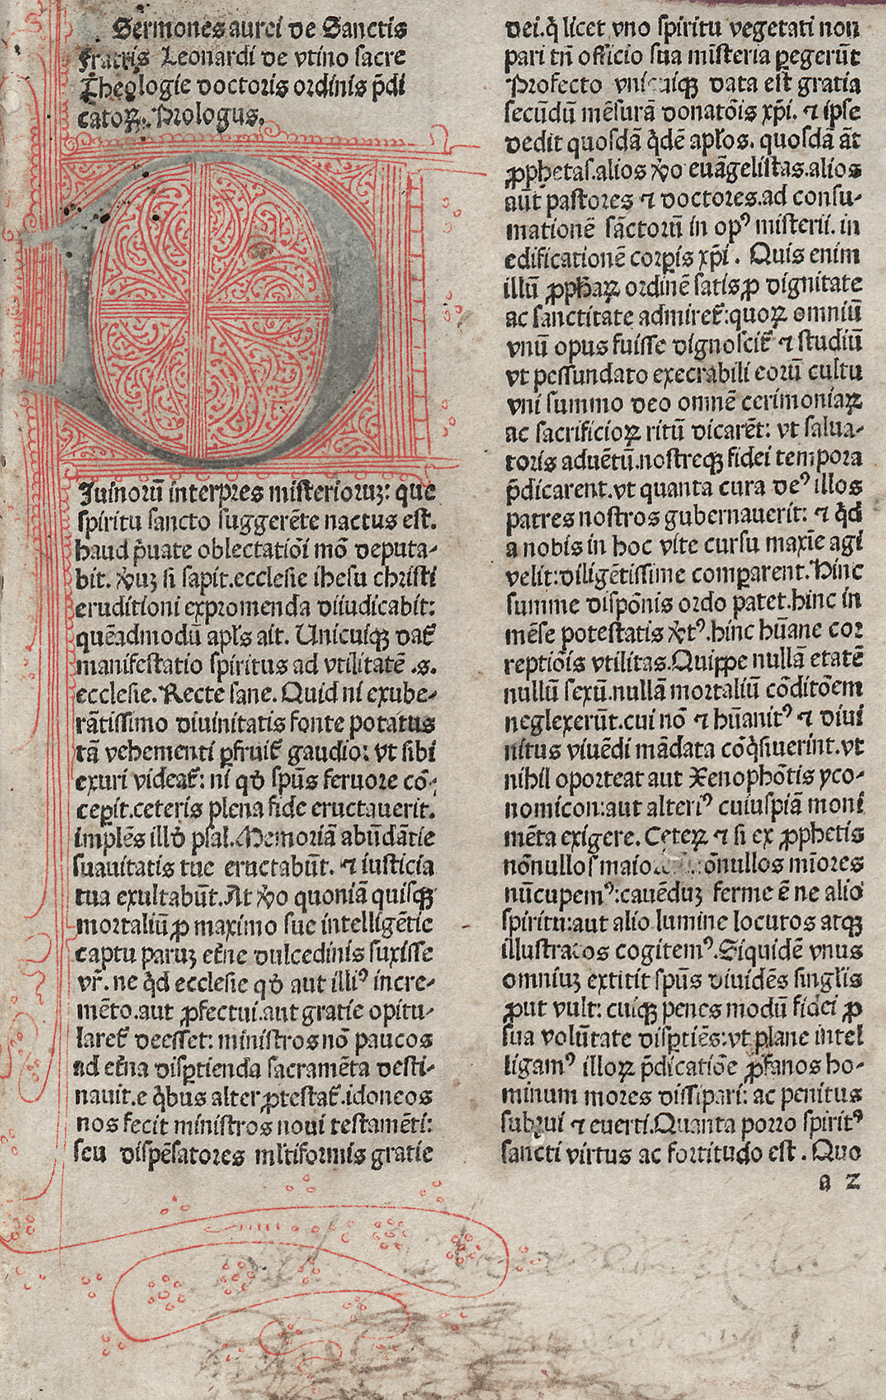 Sermones aurei de Sanctis
fratris Leonardi de vtino sacre
Theologie doctoris ordinis p̄di
catoꝝ. Prologus.
D
Iuinorū interpres misterioruꝫ: que
spiritu sancto suggerēte nactus est.
haud p̄uate oblectatiōi mō deputa-
bit. ꝟuꝫ si sapit.ecclesie ihesu christi
eruditioni expromenda diiudicabit:
quēadmodū apl̄s ait. Unicuiqꝫ dat̄
manifestatio spiritus ad vtilitatē .s.
ecclesie. Recte sane. Quid ni exube-
rātissimo diuinitatis fonte potatus
tā vehementi ꝑfruit̄ gaudio: vt sibi
exuri videat̄: ni qd̄ sp̄us feruore cō-
ceꝑit.ceteris plena fide eructauerit.
implēs illd̄ psal. Memoriā abūdātie
suauitatis tue eructabūt. ⁊ iusticia
tua exultabūt. At ꝟo quoniā quisqꝫ
mortaliū ꝓ maximo sue intelligētie
captu paruꝫ et̄ne dulcedinis suxisse
vr̄. ne qd̄ ecclesie qd̄ aut illiꝰ incre-
mēto.aut ꝓfectui.aut gratie opitu-
laret̄ deesset: ministros nō paucos
ad et̄na disꝑtienda sacramēta desti-
nauit.e q̄bus alter ꝓtestat̄.idoneos
nos fecit ministros noui testamēti:
seu dispēsatores ml̄tiformis gratie
dei.q̄ licet vno spiritu vegetati non
pari tn̄ officio sua mīsteria ꝑegerūt
Profecto vnicuiqꝫ data est gratia
secūdū mēsurā donatōis xp̄i. ⁊ ipse
dedit quosdā q̄dē apl̄os. quosdā āt
ꝓphetas.alios ꝟo euāgelistas.alios
aūt pastores ⁊ doctores.ad consu-
mationē sāctorū in opꝰ misterii. in
edificationē corꝑis xp̄i. Quis enim
illū ꝓphaꝝ ordinē satis ꝓ dignitate
ac sanctitate admiret̄:quoꝝ omniū
vnū opus fuisse dignoscit̄ ⁊ studiū
vt pessundato execrabili eorū cultu
vni summo deo omnē cerimoniaꝝ
ac sacrificioꝝ ritū dicarēt: vt salua-
toris aduētū.nostreqꝫ fidei tempora
p̄dicarent.vt quanta cura deꝰ illos
patres nostros gubernauerit: ⁊ qd̄
a nobis in hoc vite cursu maxīe agi
velit:diligētissime comꝑarent. Hinc
summe dispōnis ordo patet.hinc in
mēse potestatis ꝟtꝰ.hinc hūane cor
reptiōis vtilitas. Quippe nullā etatē
nullū sexū.nullā mortaliū cōditōem
neglexerūt.cui nō ⁊ hūanitꝰ ⁊ diui
nitus viuēdi mādata cōq̄siuerint.vt
nihil oporteat aut Xenophōtis yco-
nomicon:aut alteriꝰ cuiuspiā moni
mēta exigere. Ceteꝝ ⁊ si ex ꝓphetis
nōnullos ōnullos mīores
nūcupemꝰ:cauēduꝫ ferme ē ne alio
spiritu:aut alio lumine locutos atqꝫ
illustratos cogitemꝰ. Siquidē vnus
omniuꝫ extitit sp̄us diuidēs singlis
ꝓut vult: cuiqꝫ penes modū fidei ꝓ
sua volūtate disꝑtiēs:vt plane intel
ligamꝰ illoꝝ p̄dicatiōe ꝓfanos ho-
minum mores dissipari: ac penitus
subrui ⁊ euerti. Quanta porro spiritꝰ
sancti virtus ac fortitudo est. Quo
a 2